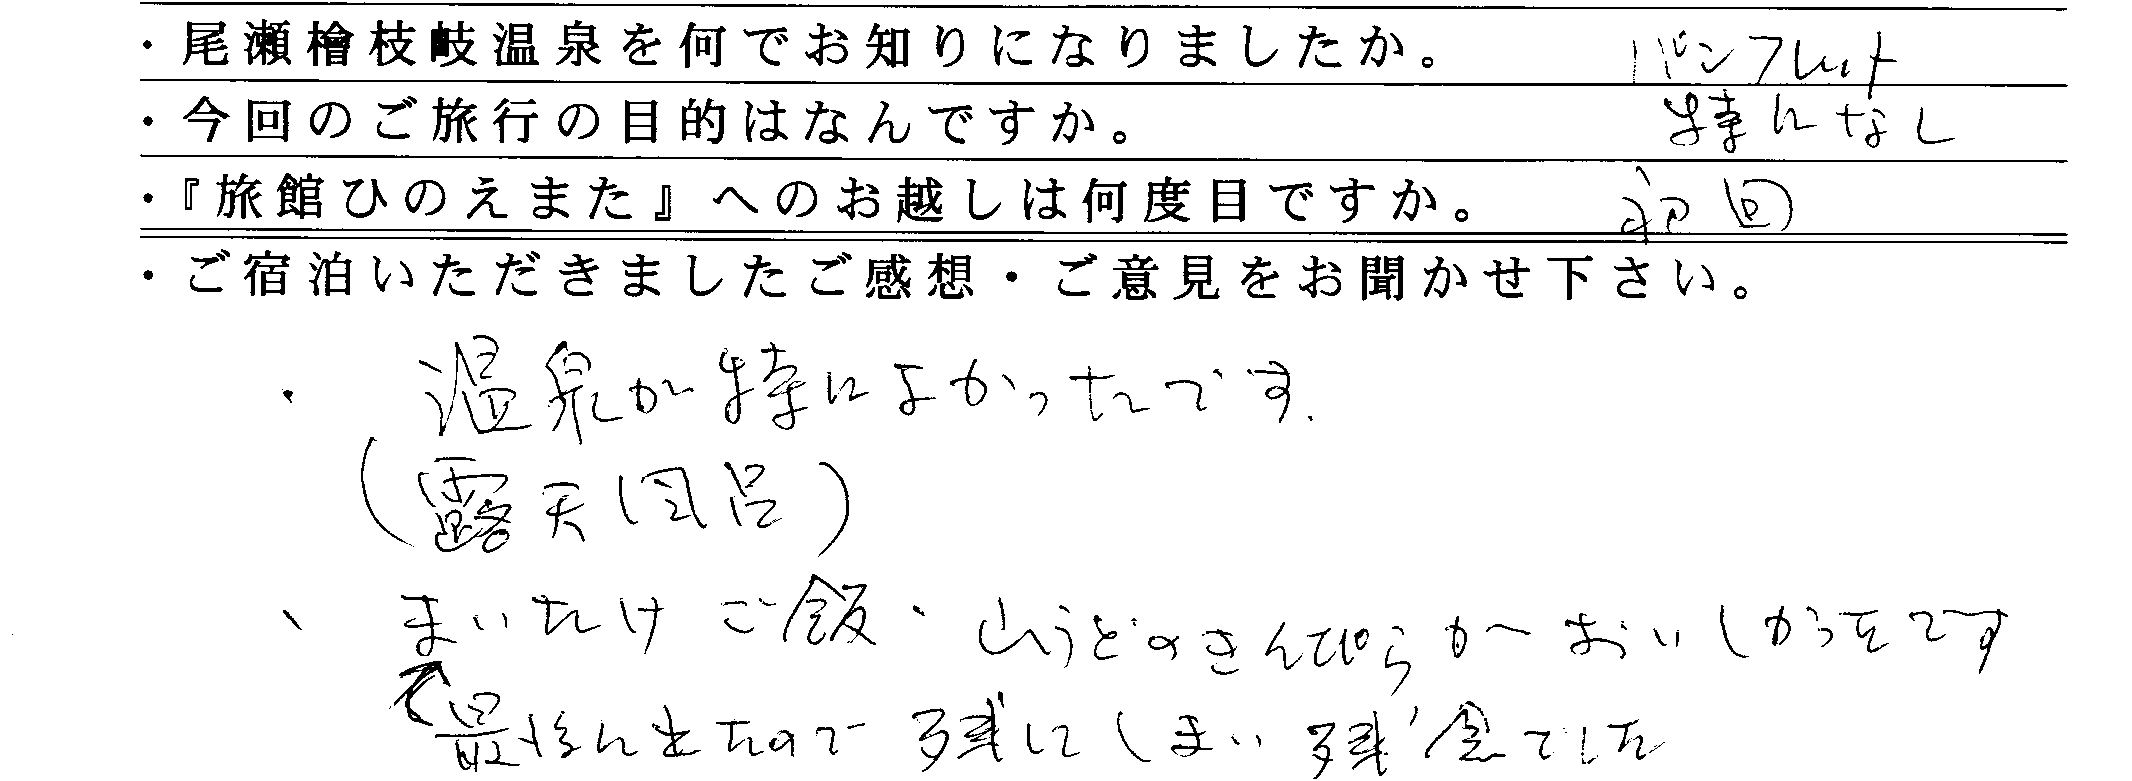 ・尾瀬檜枝岐温泉を何でお知りになりましたか。 パンフレット
・今回のご旅行の目的はなんですか。 特になし
・『旅館ひのえまた』へのお越しは何度目ですか。 初回
・ご宿泊いただきましたご感想・ご意見をお聞かせ下さい。
・ 温泉が特によかったです.
(露天風呂)
、 まいたけご飯・山うどのきんぴらがおいしかったです
最後に出たので残してしまい残念でした